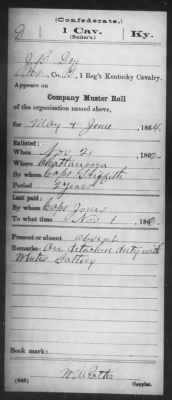 (Confederate.)
1 Cav.
(Butler's.)
Ky.
J. B.
Co. B, 1 Reg't Kentucky Cavalry.
Appears on
Company Muster Roll
of the organization named above,
for May & June, 1864.
Enlisted:
When Nov. 21, 1862.
Where Chattanooga
By whom Capt. Griffith
Period 3 years
Last paid:
By whom Capt. Jones
To what time Nov. 1, 186
Present or absent absent
Remarks: On detached duty with
White's Battery
Book mark:
(642)
Copyist.